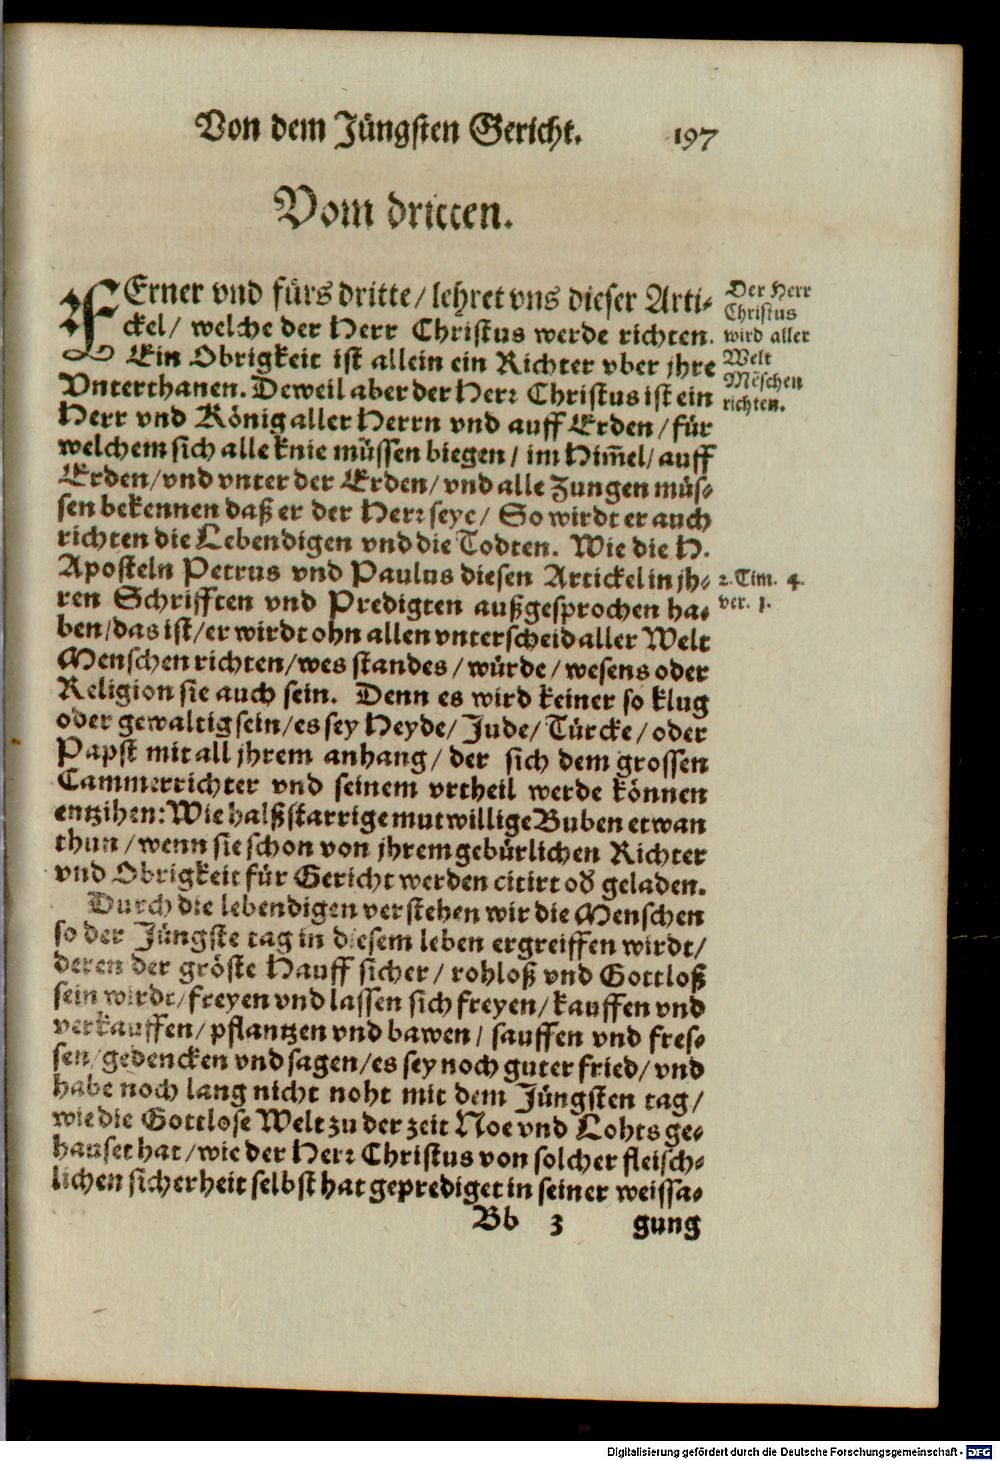 Von dem Jüngsten Gericht. 197
Vom dritten.
FErner vnd fürs dritte / lehret vns dieser Arti-
ckel / welche der Herr Christus werde richten.
Ein Obrigkeit ist allein ein Richter vber jhre
Vnterthanen. Deweil aber der Herr Christus ist ein
Herr vnd König aller Herrn vnd auff Erden / für
welchem sich alle knie müssen biegen / im Him̃el / auff
Erden / vnd vnter der Erden / vnd alle Zungen müs-
sen bekennen daß er der Herr seye / So wirdt er auch
richten die Lebendigen vnd die Todten. Wie die H.
Aposteln Petrus vnd Paulus diesen Artickel in jh-
ren Schrifften vnd Predigten außgesprochen ha-
ben / das ist / er wirdt ohn allen vnterscheid aller Welt
Menschen richten / wes standes / würde / wesens oder
Religion sie auch sein. Denn es wird keiner so klug
oder gewaltig sein / es sey Heyde / Jude / Türcke / oder
Papst mit all jhrem anhang / der sich dem grossen
Cammerrichter vnd seinem vrtheil werde können
entzihen: Wie halßstarrige mutwillige Buben etwan
thun / wenn sie schon von jhrem gebürlichen Richter
vnd Obrigkeit für Gericht werden citirt od̕ geladen.
Durch die lebendigen verstehen wir die Menschen
so der Jüngste tag in diesem leben ergreiffen wirdt /
deren der gröste Hauff sicher / rohloß vnd Gottloß
sein wirdt / freyen vnd lassen sich freyen / kauffen vnd
verkauffen / pflantzen vnd bawen / sauffen vnd fres-
sen / gedencken vnd sagen / es sey noch guter fried / vnd
habe noch lang nicht noht mit dem Jüngsten tag /
wie die Gottlose Welt zu der zeit Noe vnd Lohts ge-
hauset hat / wie der Herr Christus von solcher fleisch-
lichen sicherheit selbst hat geprediget in seiner weissa-
Bb 3 gung
Der Herr
Christus
wird aller
Welt
Mẽschen
richten.
2. Tim. 4.
ver. 1.
Digitalisierung gefördert durch die Deutsche Forschungsgemeinschaft - DFG